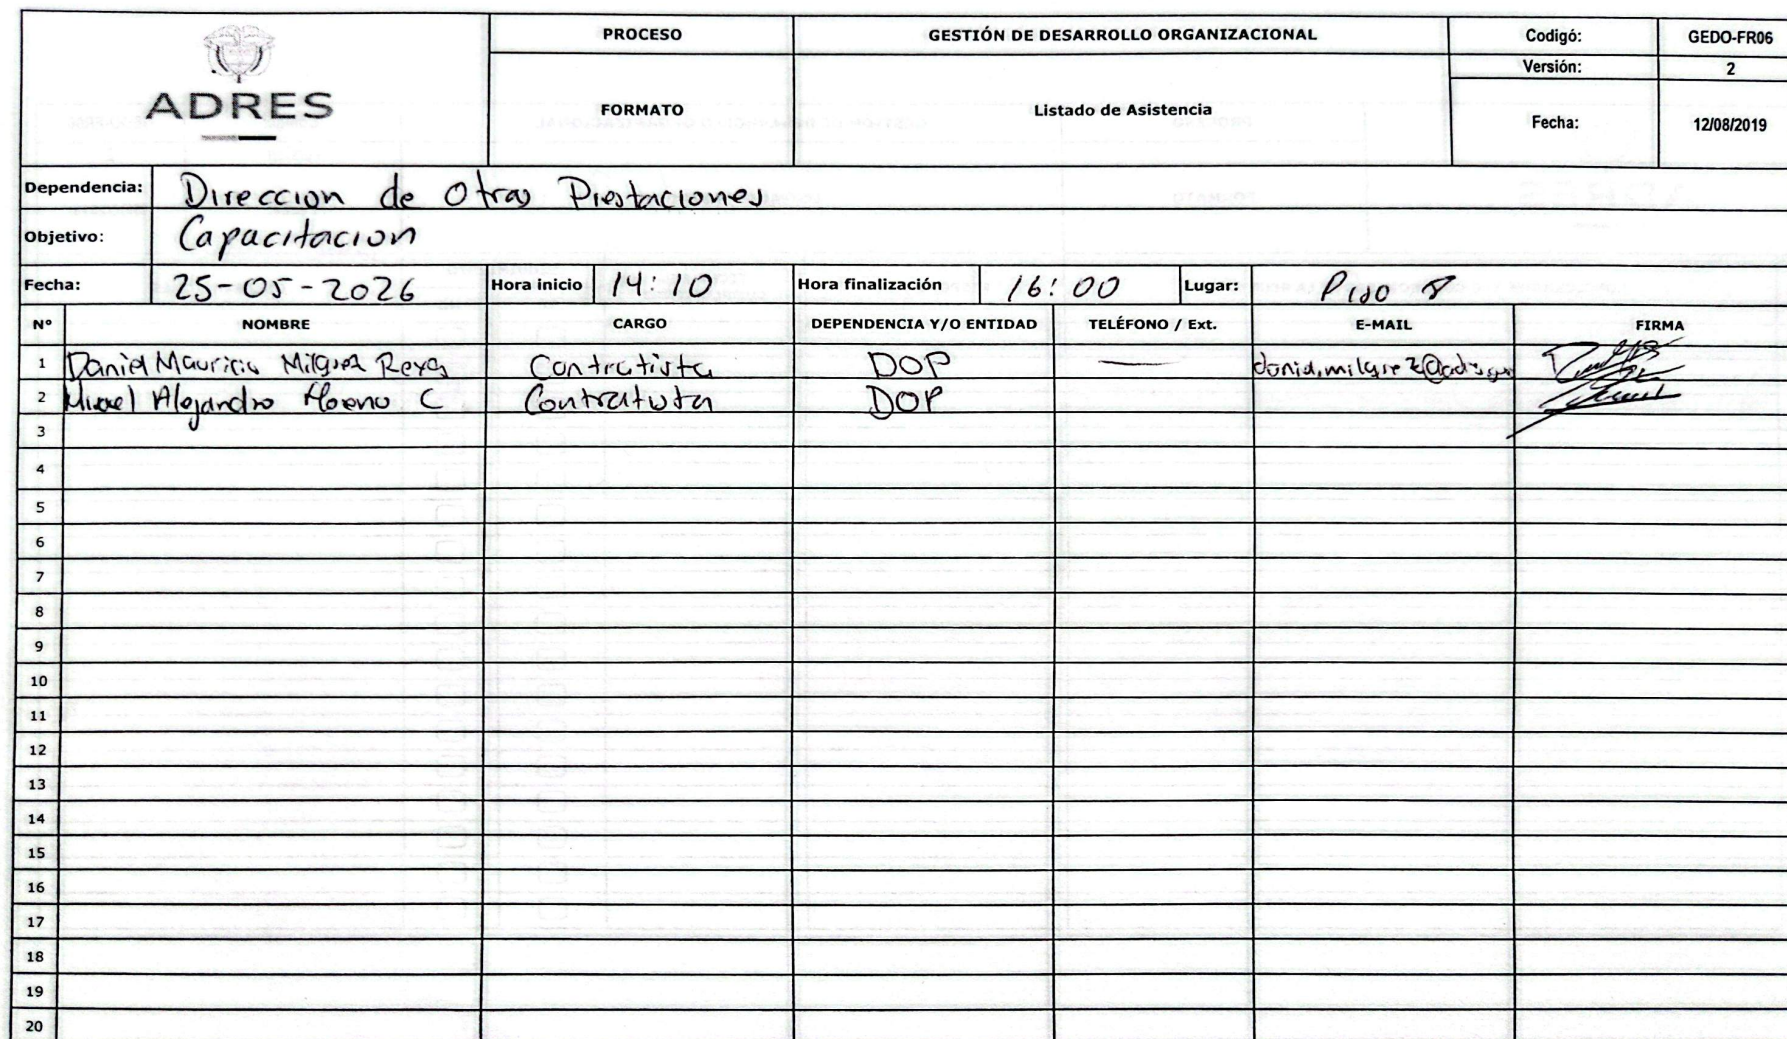 ADRES
PROCESO
GESTIÓN DE DESARROLLO ORGANIZACIONAL
Codigó:
GEDO-FR06
Versión:
2
FORMATO
Listado de Asistencia
Fecha:
12/08/2019
Dependencia: Direccion de Otras Prestaciones
Objetivo: Capacitacion
Fecha: 25-05-2026 Hora inicio 14:10 Hora finalización 16:00 Lugar: Piso 8
Nº NOMBRE CARGO DEPENDENCIA Y/O ENTIDAD TELÉFONO / Ext. E-MAIL FIRMA
1 Daniel Mauricio Reyes Contratista DOP —
2 Miguel Alejandro Moreno C Contratista DOP
3
4
5
6
7
8
9
10
11
12
13
14
15
16
17
18
19
20